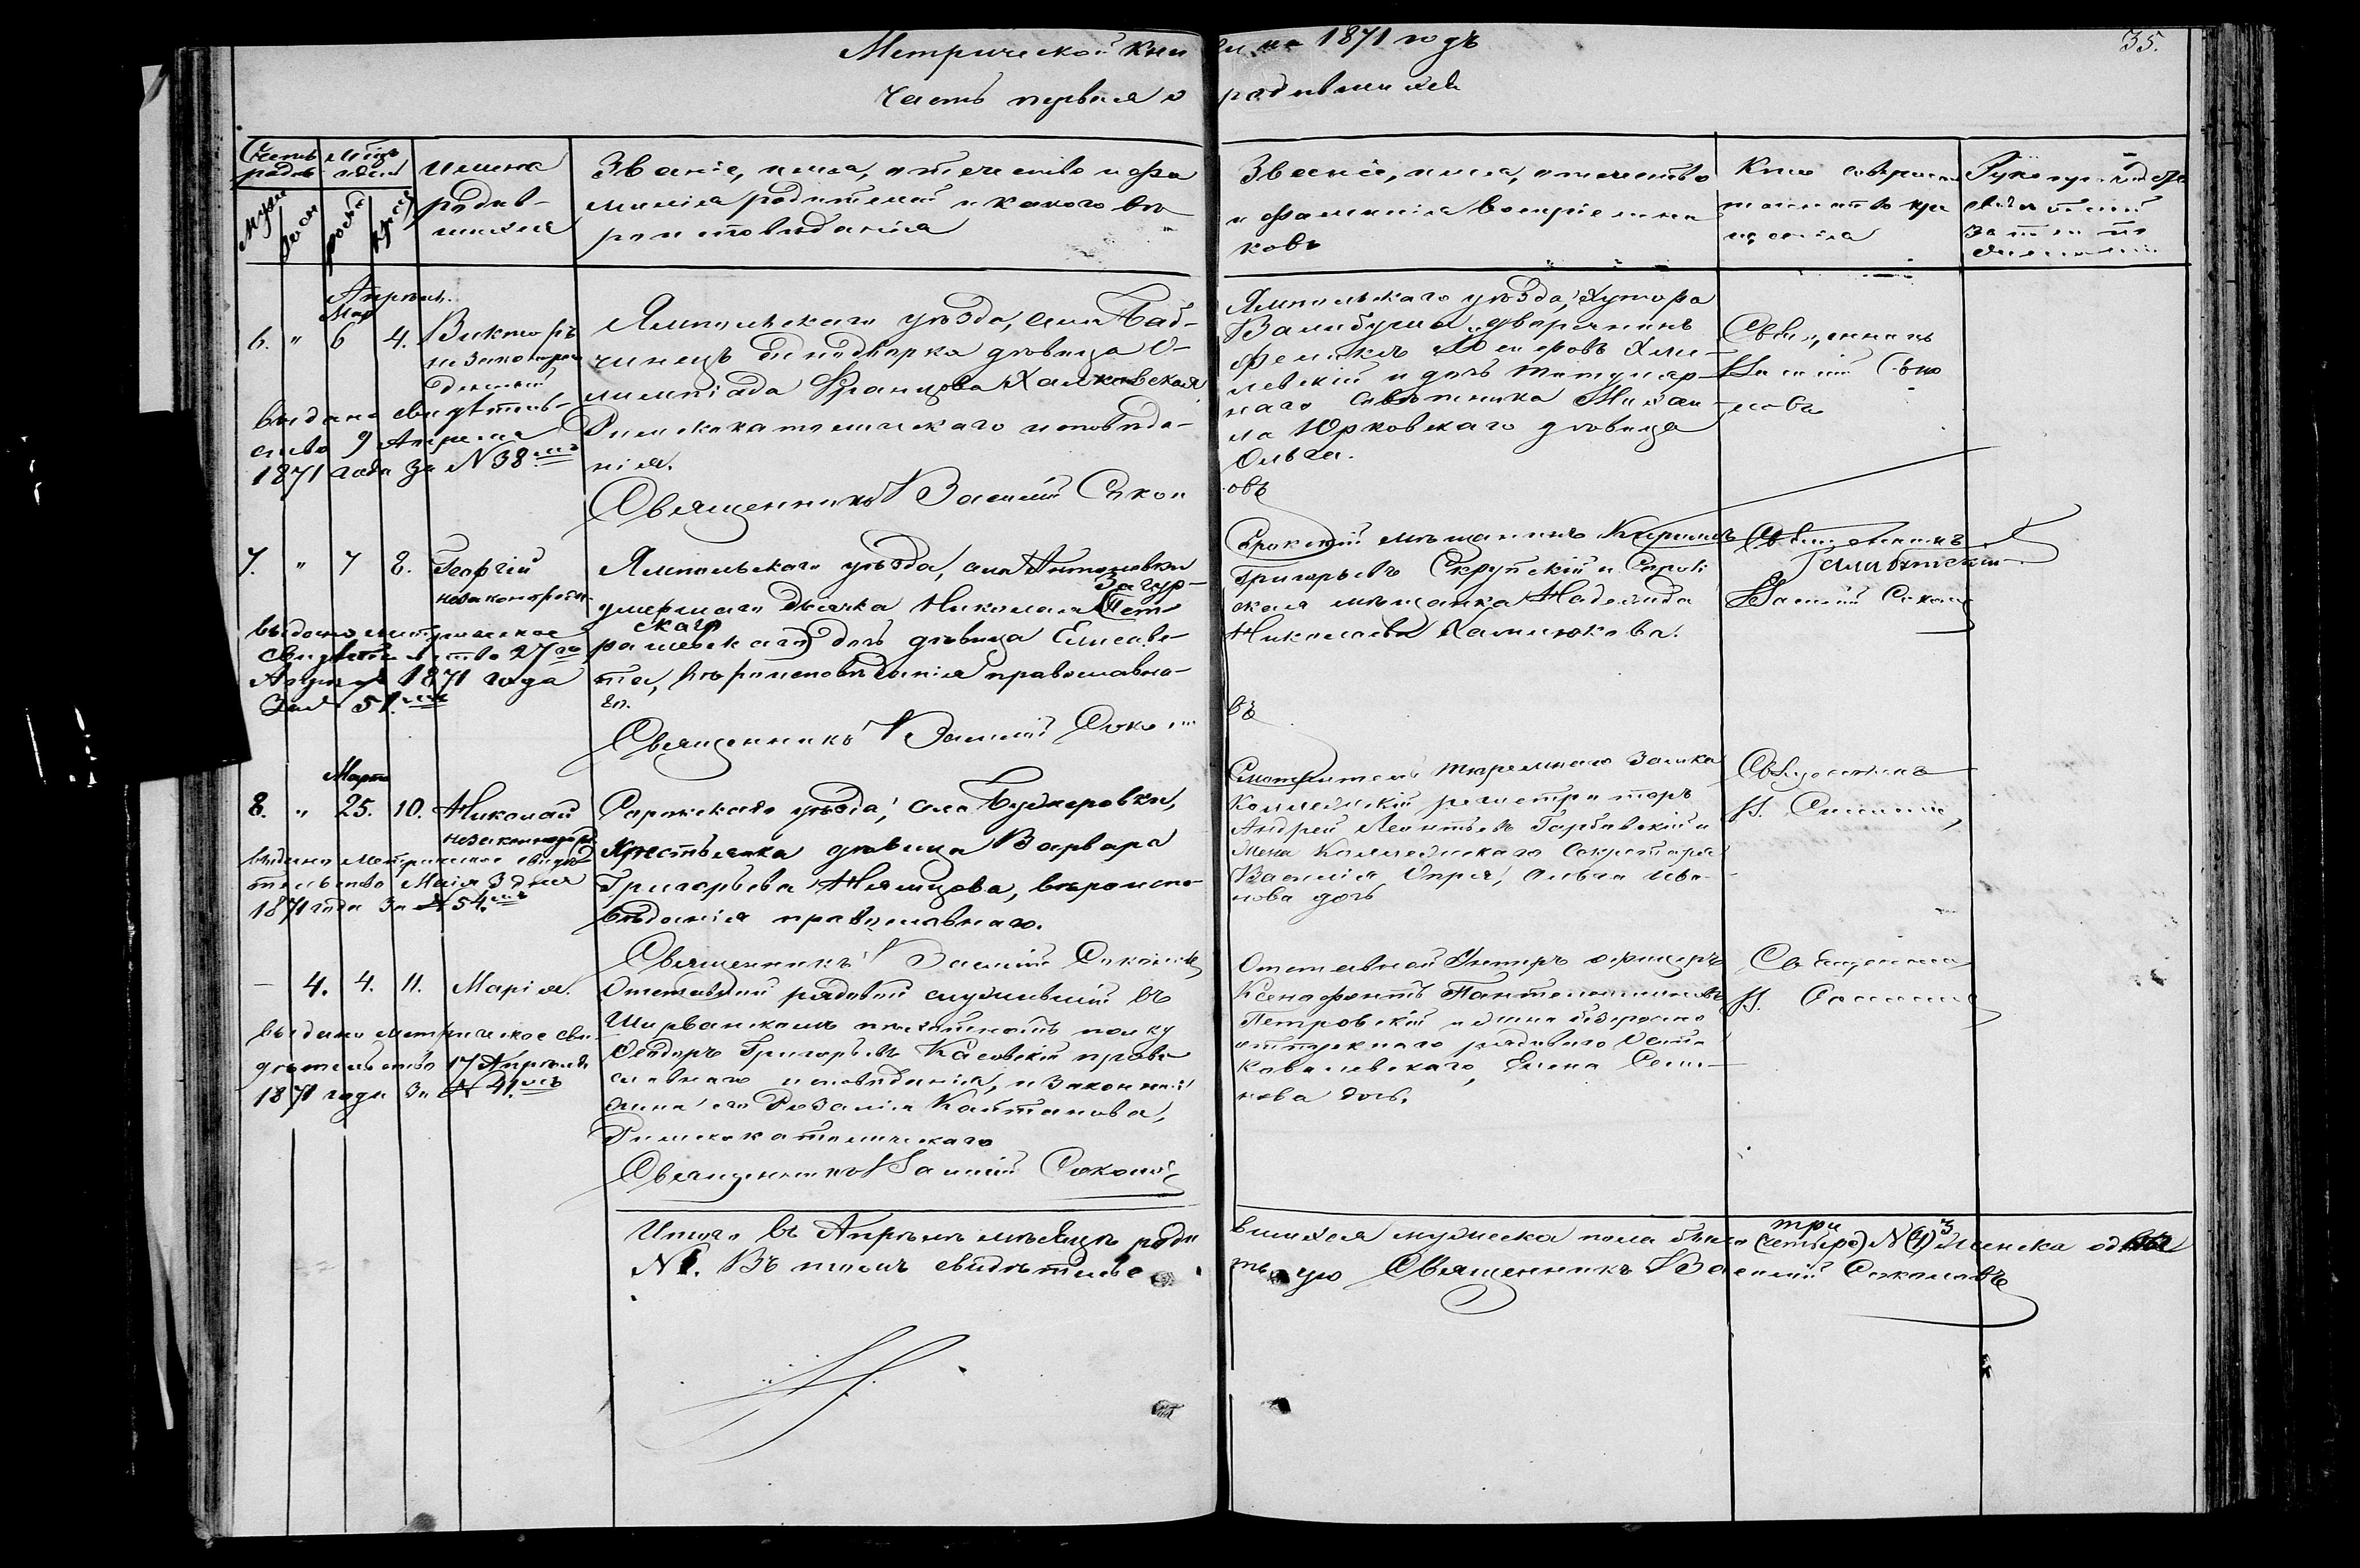 Метрической кни ги на 1871 годъ
35.
Часть первая о родившихся
Счетъ родив.
Мѣсяцъ и день
Муж
Жен
рожд
крещ
имена
родив-
шихся
Званіе, имя, отечество и фа
милія родителей и какого вѣ
роисповѣданія
Званіе, имя, отечество
и фамилія воспріемни
ковъ
Кто совершалъ
таинство кре
щенія
Апрѣль.
Мар
6. " 6 4. Викторъ
незаконорож
денный
выдано свидѣтель-
ство 9 Апрѣля
1871 года за N 38.мъ
Ямпольскаго уѣзда, села Баб-
чинецъ дѣвица О-
лимпіада Францова Халковская
Римскокатолическаго исповѣда-
нія.
Священникъ Василій Сокол
овъ
Ямпольскаго уѣзда, Хутора
дворянинъ
и дочь титуляр-
наго Совѣтника Михаи-
ла Юрковскаго дѣвица
Ольга.
Священникъ
Василій Соко
ловъ
7. " 7 8. Георгій
незаконорожд.
выдано метрическое
свидѣтельство 27го
Апрѣля 1871 года
За N 51.мъ
Ямпольскаго уѣзда, села Антоновки
Загур-
умершаго дьячка Николая (Пет-
скаго
рашевскаго) дочь дѣвица Елисаве-
та, вѣроисповѣданія православна-
го.
Священникъ Василій Соколо
въ
Сорокскій мѣщанинъ Кириллъ
Григорьевъ Скрупскій и Сорок
ская мѣщанка Надежда
Николаева Халилокова.
Священникъ
Василій Соколов
Март
8. " 25. 10. Николай
незаконорожд
выдано метрическое свидѣ
тельство Маія 3 дня
1871 года За N 54.мъ
Сорокскаго уѣзда, села
Крестьянка дѣвица Варвара
Григорьева Нѣмцова, вѣроиспо-
вѣданія православнаго.
Священникъ Василій Соколов
Смотритель тюремнаго замка
Коллежскій регистраторъ
Андрей Леонтьевъ Горбавскій и
Жена Коллежскаго Секретаря
Василія Опря, Ольга Ива-
нова дочь
Священникъ
В. Соколов
— 4. 4. 11. Марія.
выдано метрическое сви
дѣтельство 17 Апрѣля
1871 года За N 41.мъ
Отставной рядовой служившій въ
Ширванскомъ пѣхотномъ полку
Ѳеодоръ Григорьевъ Косовскій право
славнаго исповѣданія, и законная
жена его Розалія Кайтанова,
Римскокатолическаго
Священникъ Василій Соколов
Отставной Унтеръ офицеръ
Ксенофонтъ Пантелеимоновъ
Петровскій и жена безсрочно
отпускнаго рядоваго Осипа
Ковалевскаго, Елена Семе-
нова дочь.
Священникъ
В. Соколов
три 3
Итого въ Апрѣлѣ мѣсяцѣ роди вшихся мужеска пола было (четыре) N (4) женска одна
N 1. Въ томъ свидѣтельс твую Священникъ Василій Соколовъ